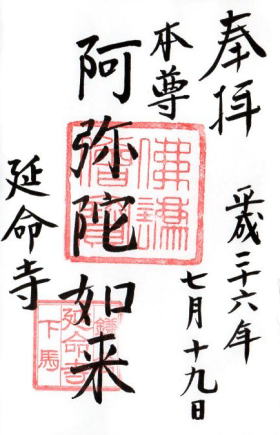 奉拝
平成二十六年
七月十九日
本尊
阿弥陀如来
延命寺
佛法僧寶
鎌倉
延命寺
下馬